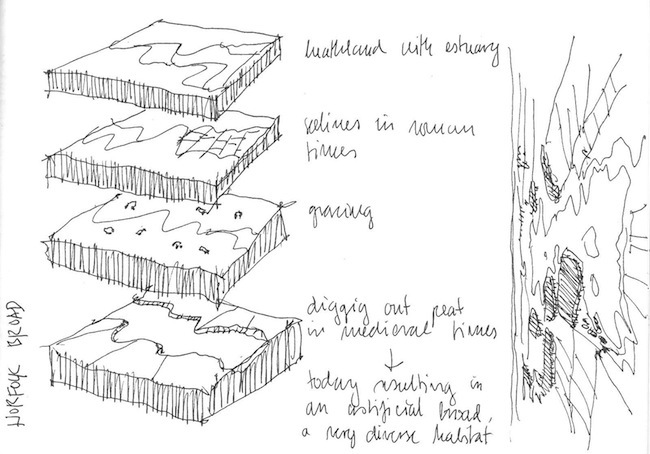 heathland with estuary
salines in roman
times
grazing
diggig out peat
in medieval times
↓
today resulting in
an artificial broad,
a very diverse habitat
NORFOLK BROAD